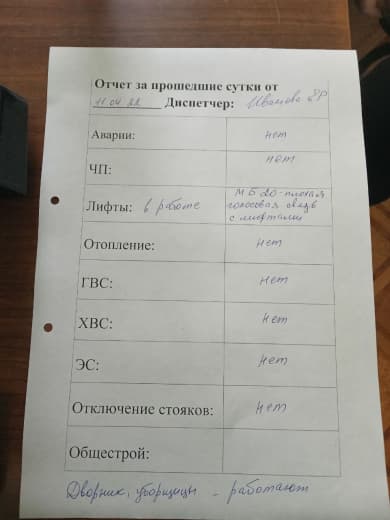 Отчет за прошедшие сутки от
11.04.22 Диспетчер: Иванова
Аварии: нет
ЧП: нет
Лифты: в работе М Б 20 - плохая
голосовая связь
с лифтами
Отопление: нет
ГВС: нет
ХВС: нет
ЭС: нет
Отключение стояков: нет
Общестрой:
Дворник, уборщицы - работают